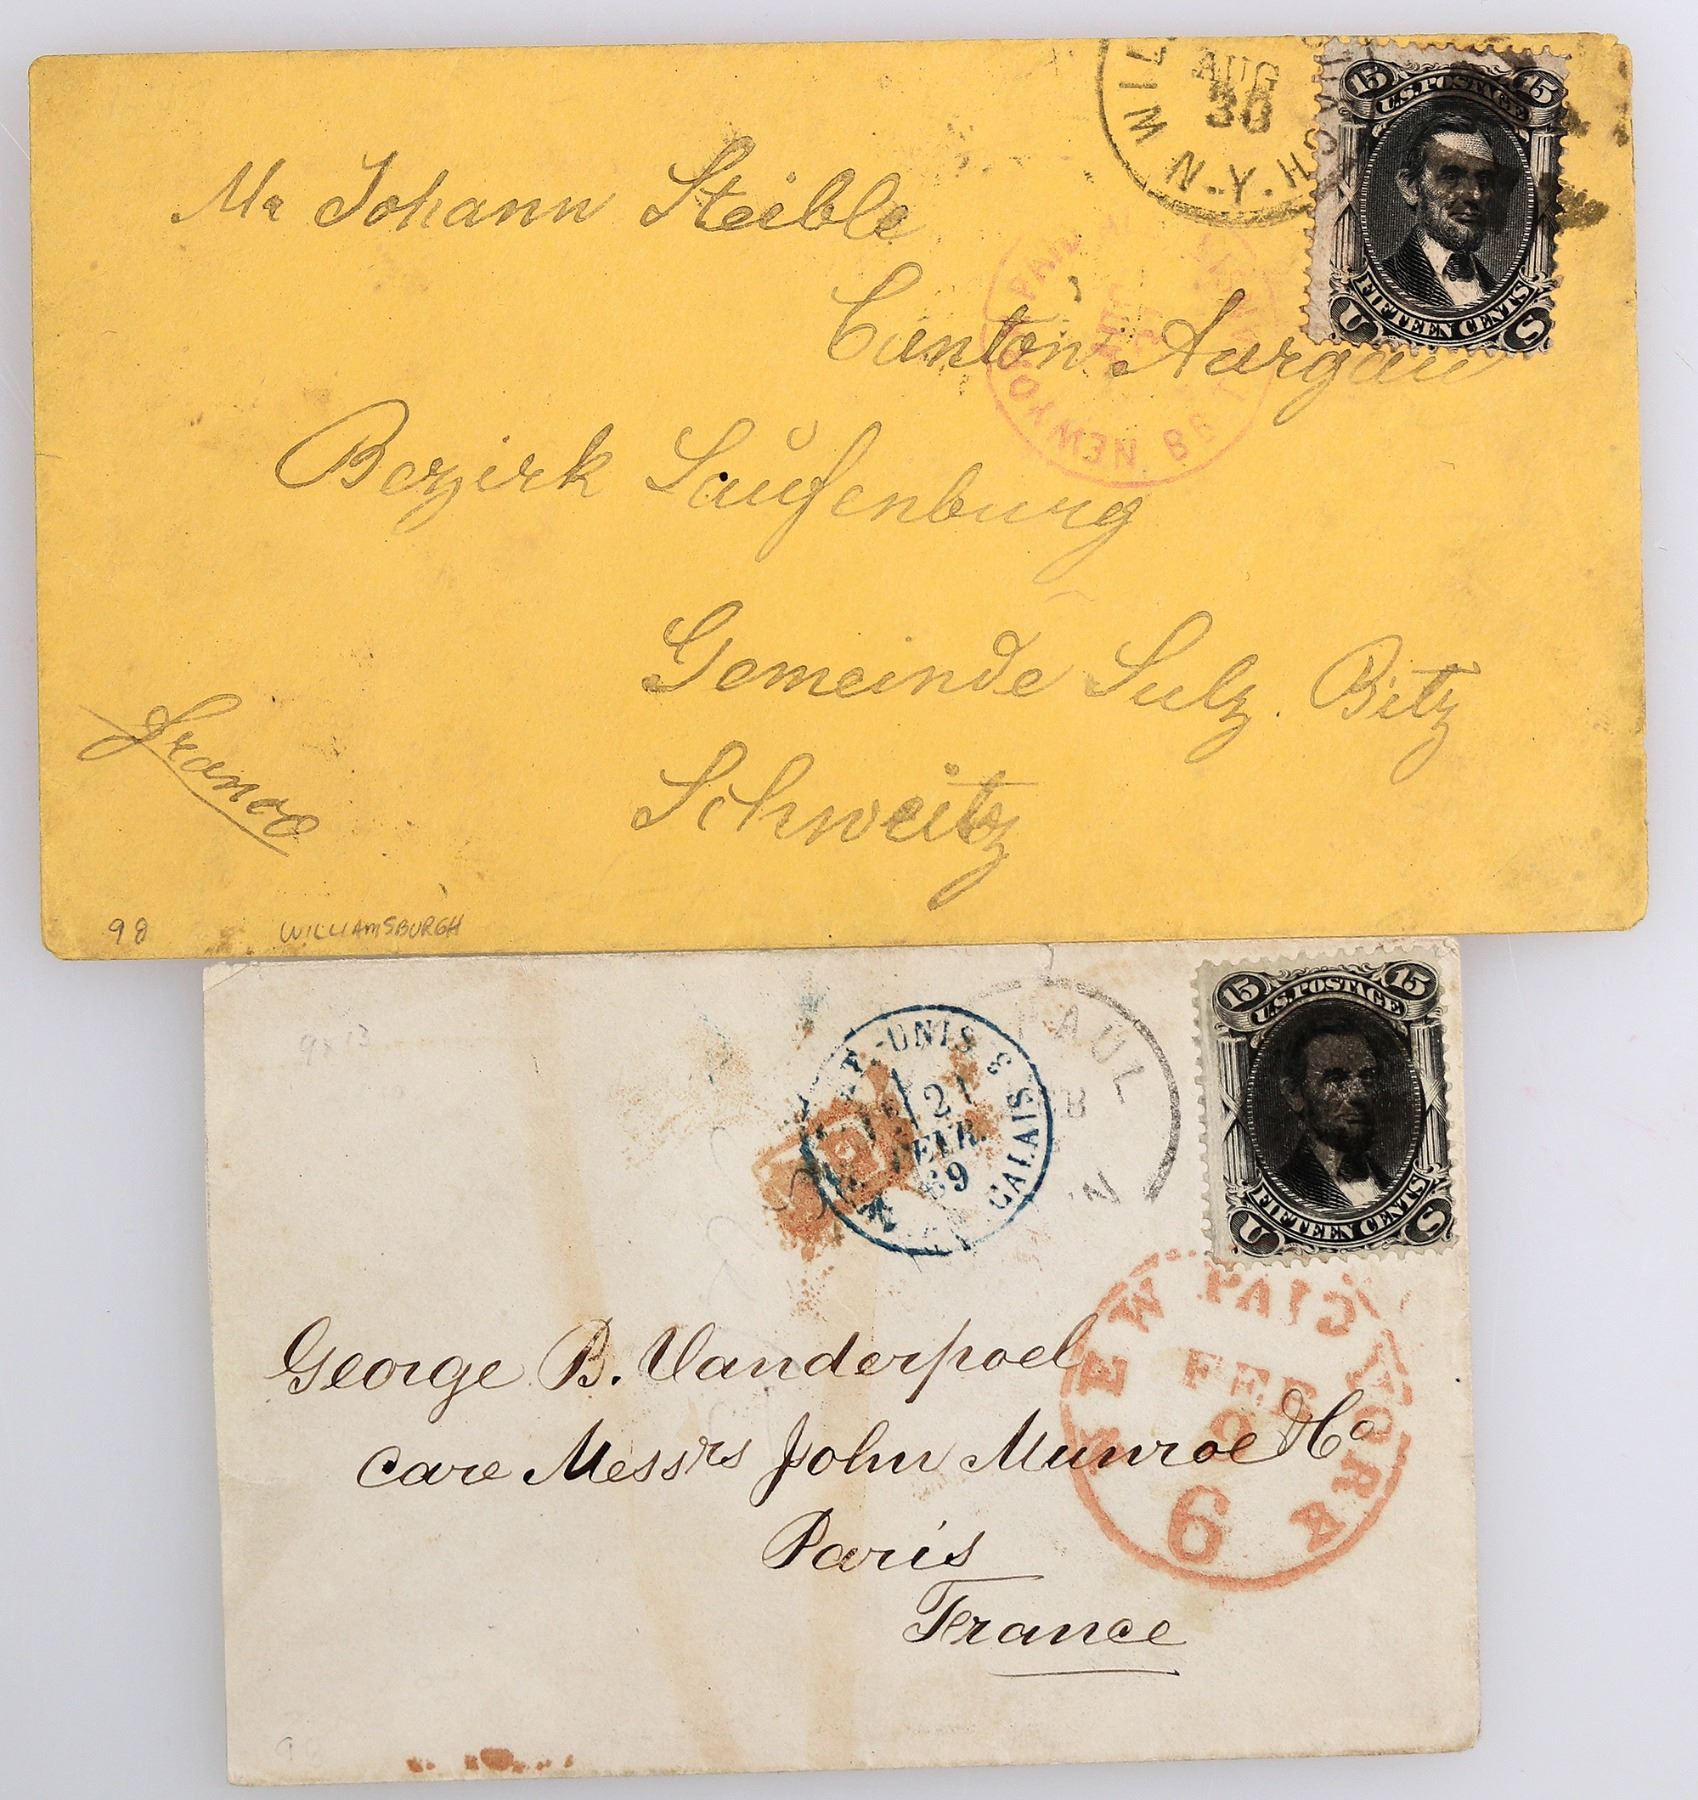 AUG
30
N.Y.
15 15
U.S. POSTAGE
FIFTEEN CENTS
U S
Mr Johann Steible
Canton Aargau
Bezirk Laufenburg
Gemeinde Sulz. Bitz
Schweitz
franco
NEW YORK PAID ALL
98
WILLIAMSBURGH
9x13
ET.-UNIS &
21
FEVR.
69
CALAIS
PAUL
15 15
U.S. POSTAGE
FIFTEEN CENTS
U S
NEW YORK
PAID
FEB
6
George B. Vanderpoel
Care Messrs John Munroe & Co
Paris
France